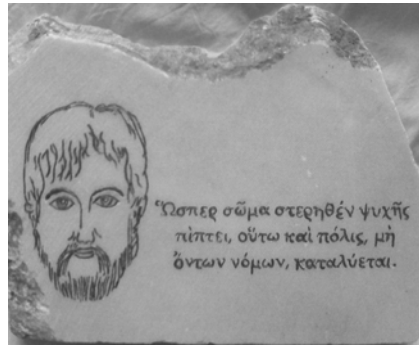 Ὥσπερ σῶμα στερηθέν ψυχῆς
πίπτει, οὕτω καί πόλις, μή
ὄντων νόμων, καταλύεται.